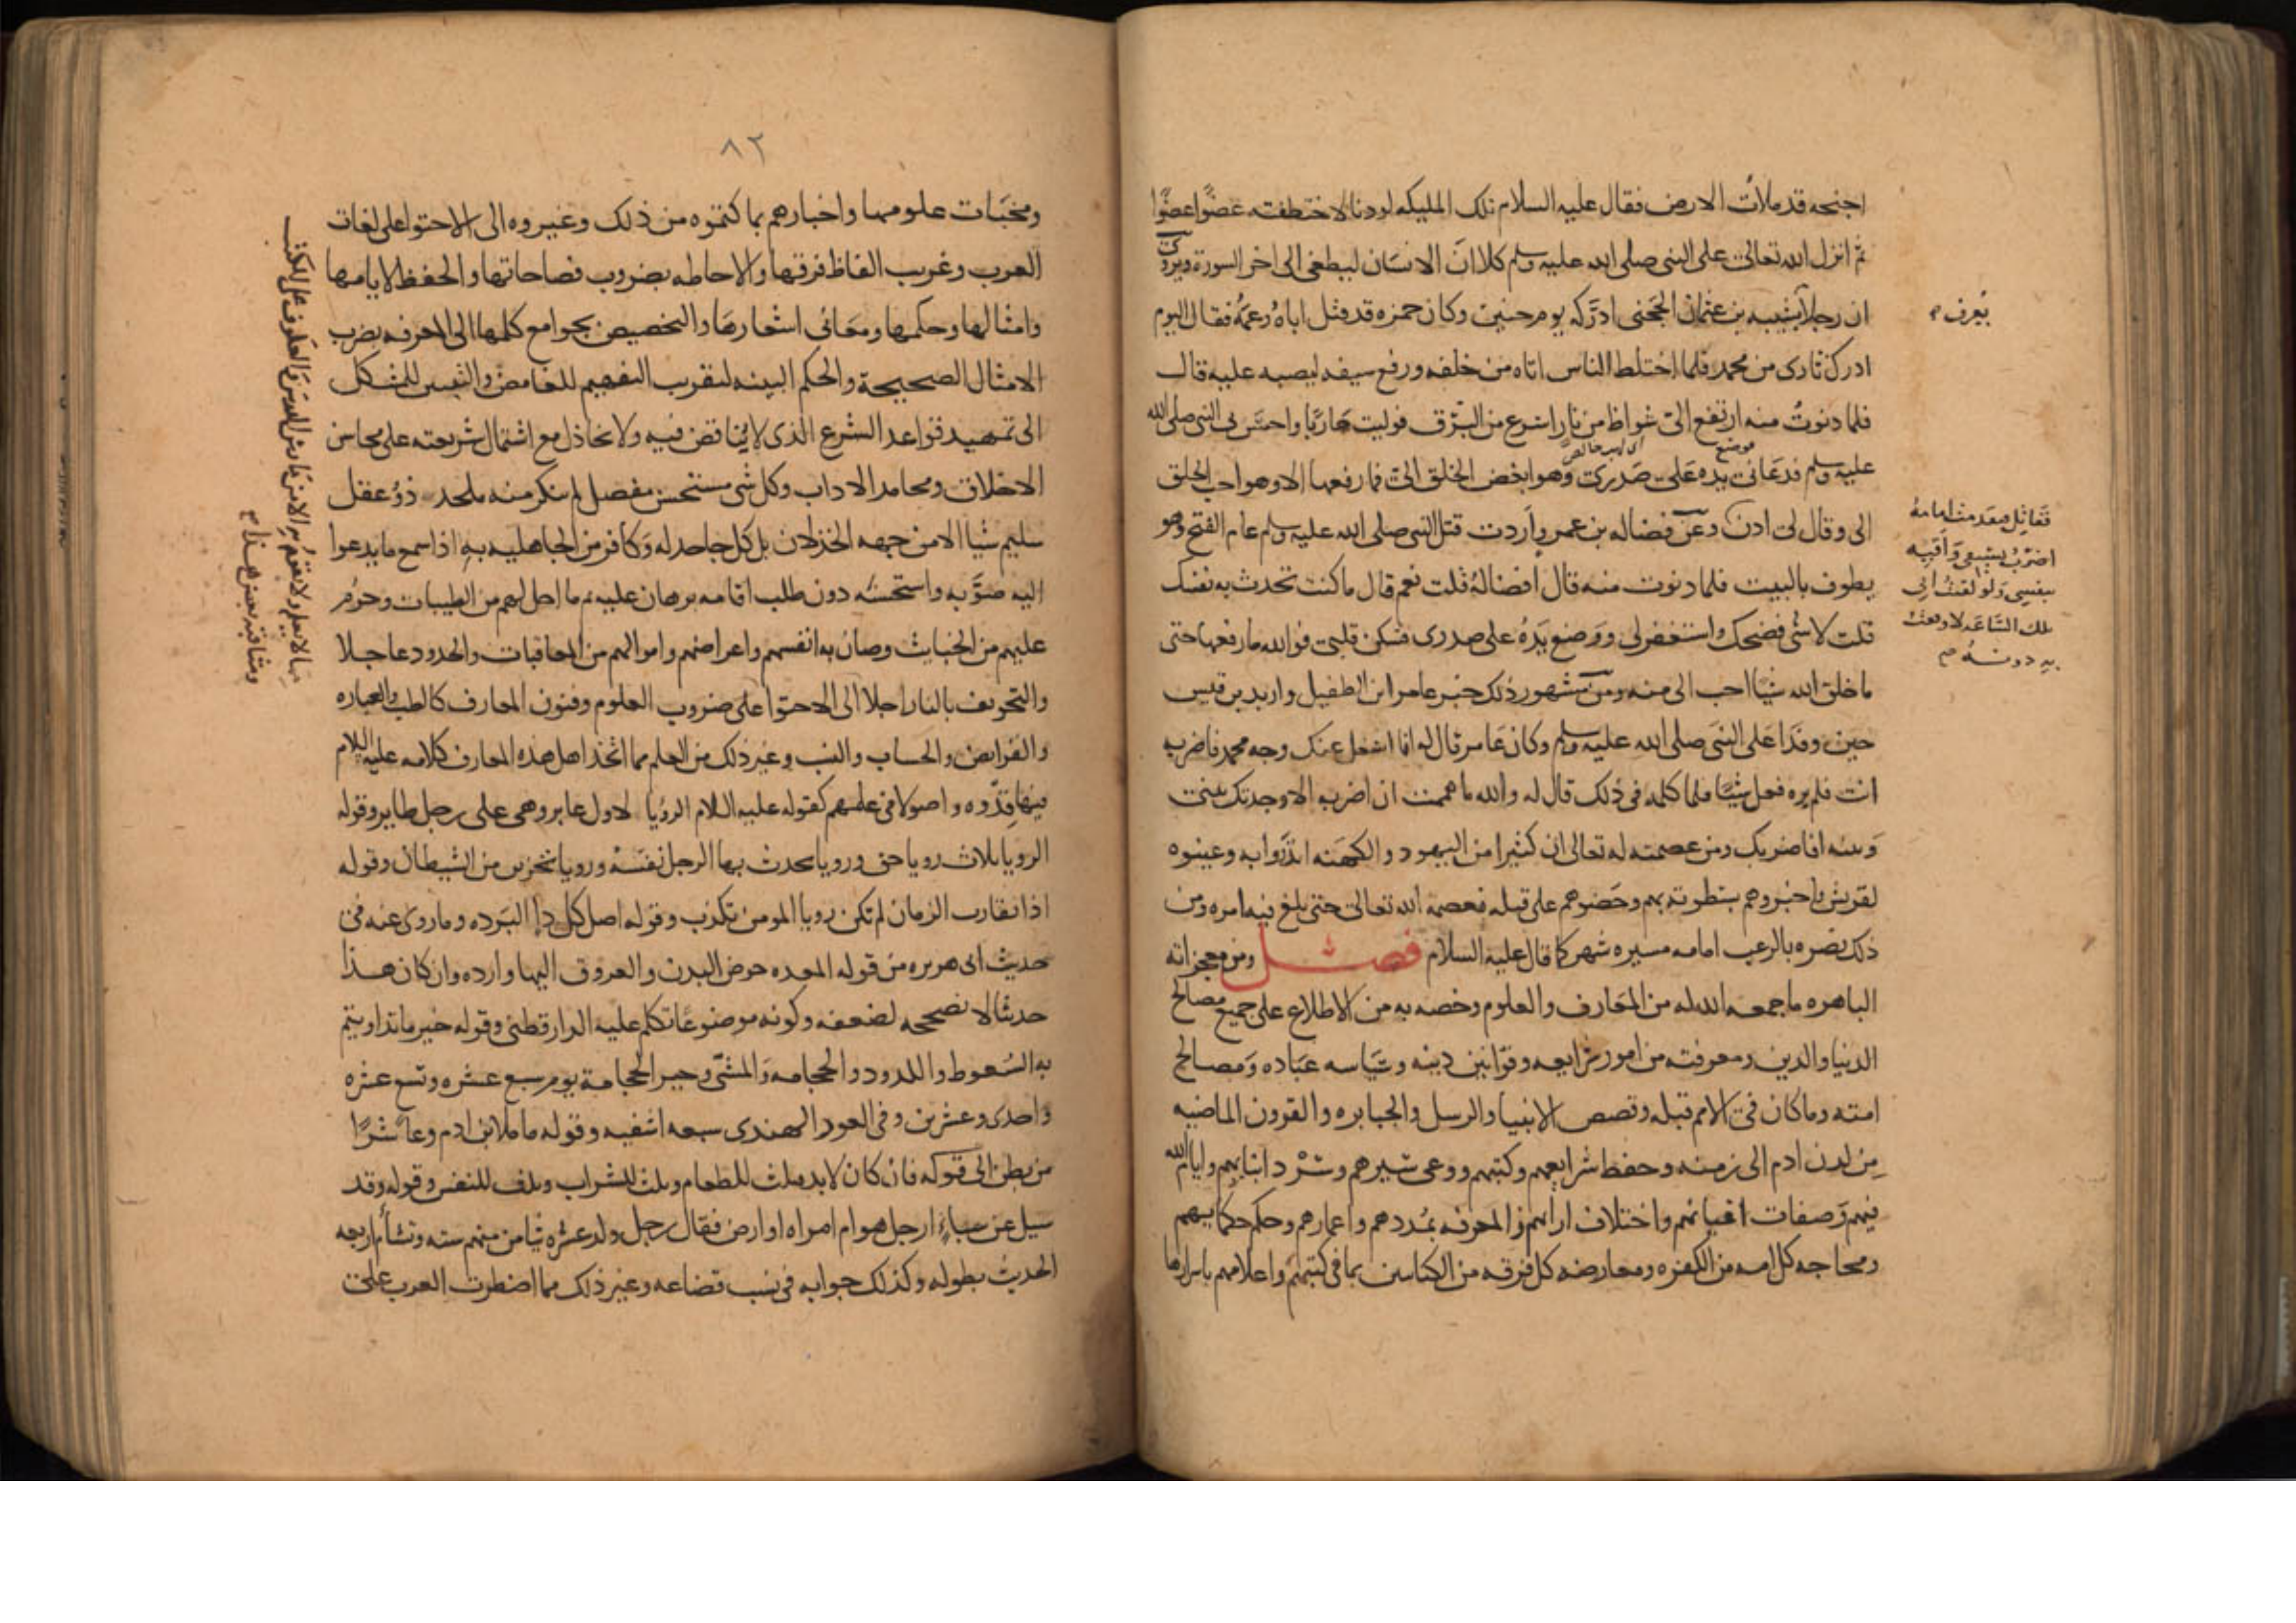 اجنحه قد ملأت الارض فقال عليه السلام تلك المليكه لو دنا لاختطفته عضوًا عضوًا
ثم انزل الله تعالى على النبى صلى الله عليه وسلم كلا ان الانسان ليطغى الى اخر السورة ويروى
ان رجلا شيبه بن عثمان الحجبى ادركه يوم حنين وكان حمزه قد قتل اباه وعمه فقال اليوم
ادرك ثارى من محمد فلما اختلط الناس اتاه من خلفه ورفع سيفه ليصبه عليه قال
فلما دنوت منه ارتفع الى شواظ من نار اسرع من البرق فوليت هاربا واحس بى النبى صلى الله
عليه وسلم فدعانى يده على صدرى وهو ابغض الخلق الى فما رفعها الا وهو احب الخلق
الى وقال لى ادن وعن فضاله بن عمرو اردت قتل النبى صلى الله عليه وسلم عام الفتح وهو
يطوف بالبيت فلما دنوت منه قال افضالة قلت نعم قال ما كنت تحدث به نفسك
قلت لا شى فضحك واستغفر لى ووضع يده على صدرى فسكن قلبى فوالله ما رفعها حتى
ما خلق الله شيا احب الى منه ومن مشهور ذلك خبر عامر ابن الطفيل واربد بن قيس
حين وفدا على النبى صلى الله عليه وسلم وكان عامر قال له انا اشغل عنك وجه محمد فاضربه
انت فلم يره فعل شيا فلما كلمه فى ذلك قال له والله ما هممت ان اضربه الا وجدتك بينى
وبينه افاضربك ومن عصمته له تعالى ان كثيرا من اليهود والكهنه انذروا به وعينوه
لقريش واخبروهم بسطوته بهم وحضوهم على قتله فعصمه الله تعالى حتى بلغ فيه امره ومن
ذلك نصره بالرعب امامه مسيره شهر كما قال عليه السلام فصل ومن معجزاته
الباهره ما جمعه الله له من المعارف والعلوم وخصه به من الاطلاع على جميع مصالح
الدنيا والدين ومعرفته من امور شرايعه وقوانين دينه وسياسه عباده ومصالح
امته وما كان فى الامم قبله وقصص الانبيا والرسل والجبابره والقرون الماضيه
من لدن ادم الى زمنه وحفظ شرايعهم وكتبهم ووعى سيرهم وسرد انبائهم وايام الله
فيهم وصفات اعيانهم واختلاف ارائهم والمعرفه بمددهم واعمارهم وحكم حكمايهم
ومحاجه كل امه من الكفره ومعارضه كل فرقه من الكتابين بما فى كتبهم واعلامهم باسرارها
يعرف
موضع
فقاتل فتقدمت امامه
اضرب بسيفى واقيه
بنفسى ولو لقيت ابى
تلك الساعه لاوقعت
به دونه
٨٢
ومخبات علومها واخبارهم بما كتموه من ذلك وغيروه الى الاحتوا على لغات
العرب وغريب الفاظ فرقها والاحاطه بضروب فصاحاتها والحفظ لايامها
وامثالها وحكمها ومعانى اشعارها والتخصيص بجوامع كلمها الى المعرفه بضرب
الامثال الصحيحة والحكم البينه لتقريب التفهيم للغامض والتبيين للمشكل
الى تمهيد قواعد الشرع الذى لا يناقض فيه ولا تخاذل مع اشتمال شريعته على محاسن
الاخلاق ومحامد الاداب وكل شى مستحسن مفصل لم ينكر منه ملحد ذو عقل
سليم شيا الا من جهه الخذلان بل كل جاحد له وكافر من الجاهليه به اذا سمع ما يدعوا
اليه صوبه واستحسنه دون طلب اقامه برهان عليه ثم ما احل لهم من الطيبات وحرم
عليهم من الخبايث وصان به انفسهم واعراضهم واموالهم من المعاقبات والحدود عاجلا
والتخويف بالنار اجلا الى الاحتوا على ضروب العلوم وفنون المعارف كالطب والعباره
والفرايض والحساب والنسب وغير ذلك من العلم مما اتخذ اهل هذه المعارف كلامه عليه السلام
فيها قدوه واصولا فى علمهم كقوله عليه السلام الرؤيا لاول عابر وهى على رجل طاير وقوله
الرويا ثلاث رويا حق ورويا يحدث بها الرجل نفسه ورويا تحزين من الشيطان وقوله
اذا تقارب الزمان لم تكن رويا المومن تكذب وقوله اصل كل دا البرده وما روى عنه فى
حديث ابى هريره من قوله المعده حوض البدن والعروق اليها وارده وان كان هذا
حديثا لا نصححه لضعفه وكونه موضوعا تكلم عليه الدارقطنى وقوله خير ما تداويتم
به السعوط واللدود والحجامه والمشى وخير الحجامة يوم سبع عشره وتسع عشره
واحدى وعشرين وفى العود الهندى سبعه اشفيه وقوله ما ملا ابن ادم وعا شرا
من بطن الى قوله فان كان لابد فثلث للطعام وثلث للشراب وثلث للنفس وقوله وقد
سيل عن سباء ارجل هو ام امراه او ارض فقال رجل ولد عشره تيامن منهم سته وتشأم اربعه
الحديث بطوله وكذلك جوابه فى نسب قضاعه وغير ذلك مما اضطرت العرب على